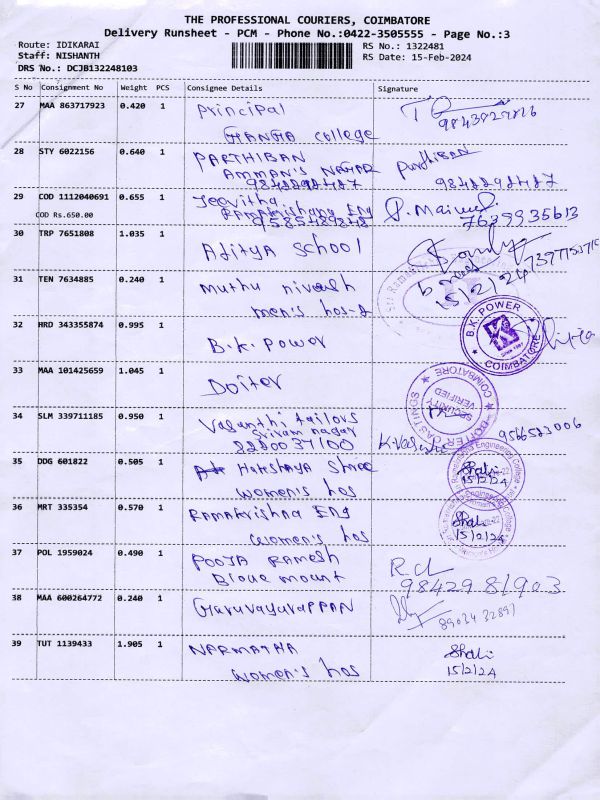 THE PROFESSIONAL COURIERS, COIMBATORE
Delivery Runsheet - PCM - Phone No.:0422-3505555 - Page No.:3
Route: IDIKARAI
RS No.: 1322481
Staff: NISHANTH
RS Date: 15-Feb-2024
DRS No.: DCJB132248103
S No Consignment No Weight PCS Consignee Details Signature
27 MAA 863717923 0.420 1 Principal
GANGA College
28 STY 6022156 0.640 1 PARTHIBAN Parthiban
AMMAN'S NAGAR
9842292487 9842292487
29 COD 1112040691 0.655 1 Jeevitha
COD Rs.650.00 Ramakrishana Eng 7639935613
9585489848
30 TRP 7651808 1.035 1 Aditya School
15/2/24
31 TEN 7634885 0.240 1 Muthu nivesh
men's hos-2
32 HRD 343355874 0.995 1 B.K. Power
B.K. POWER
Since 1987
COIMBATORE
33 MAA 101425659 1.045 1 Doiter
COIMBATORE
SECURITY
VERIFIED
34 SLM 339711185 0.950 1 Vasanthi tailors
Sriram nagar 9566523006
35 DDG 601822 0.505 1 Shali
Women's hos 15/2/24
36 MRT 335354 0.570 1 Ramakrishna Eng Shali
Women's hos 15/2/24
37 POL 1959024 0.490 1 POOJA RAMESH
Bloue mount 9842981903
38 MAA 600264772 0.240 1 Guruvayurappan
8903432891
39 TUT 1139433 1.905 1 NARMATHA Shali
Women's hos 15/2/24